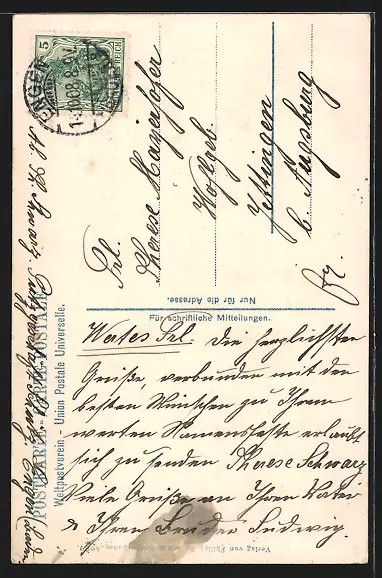 5
1.10.08.8-9V
Frl.
Therese Mayerhofer
Hofgeb.
Jettingen
b. Augsburg
fr.
Nur für die Adresse.
Für schriftliche Mitteilungen.
POSTKARTE - CARTE POSTALE
Weltpostverein - Union Postale Universelle.
Wertes Frl. Die herzlichsten
Grüße, verbunden mit den
besten Wünschen zu Ihrem
werten Namensfeste erlaubt
sich zu senden Therese Schwarz
Viele Grüße an Ihren Vater
u. Ihren Bruder Ludwig.
Verlag von